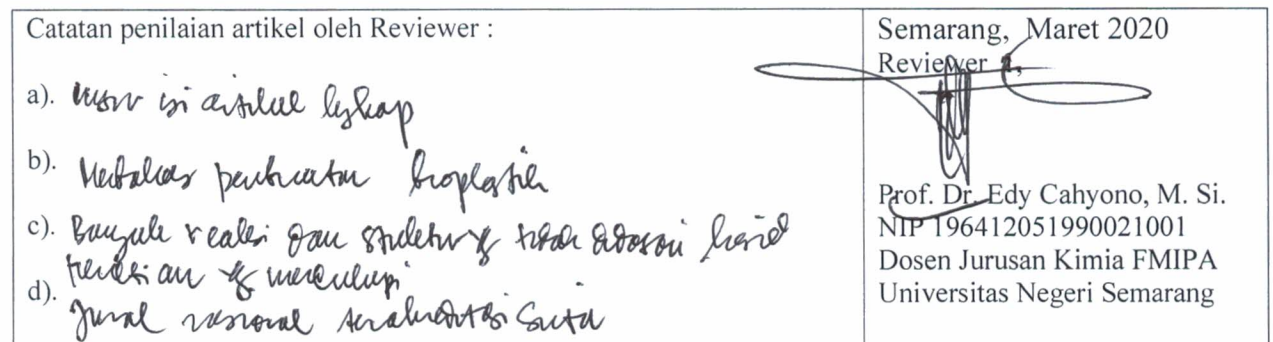 Catatan penilaian artikel oleh Reviewer :
a). unsur isi artikel lengkap
b). Membahas pembuatan bioplastik
c). Banyak reaksi dan struktur yg tidak hasil
penelitian yg mencukupi
d). Jurnal nasional terakreditasi Sinta
Semarang, Maret 2020
Reviewer 1,
Prof. Dr. Edy Cahyono, M. Si.
NIP 196412051990021001
Dosen Jurusan Kimia FMIPA
Universitas Negeri Semarang